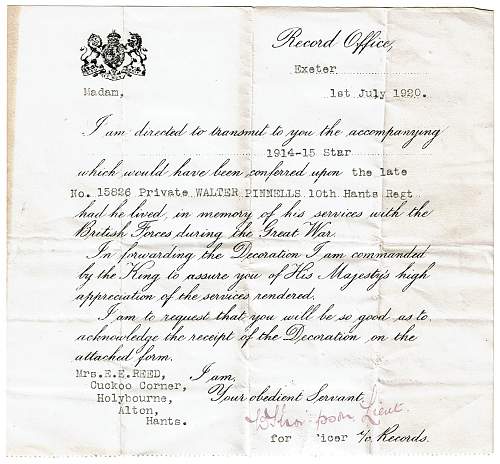 Record Office,
Exeter
Madam,
1st July 1920.
I am directed to transmit to you the accompanying
1914-15 Star
which would have been conferred upon the late
No. 15826 Private WALTER PINNELLS 10th Hants Regt
had he lived, in memory of his services with the
British Forces during the Great War.
In forwarding the Decoration I am commanded
by the King to assure you of His Majesty's high
appreciation of the services rendered.
I am to request that you will be so good as to
acknowledge the receipt of the Decoration on the
attached form.
Mrs.E.E.REED,
Cuckoo Corner,
Holybourne,
Alton,
Hants.
I am,
Your obedient Servant,
Lieut.
for icer i/c Records.